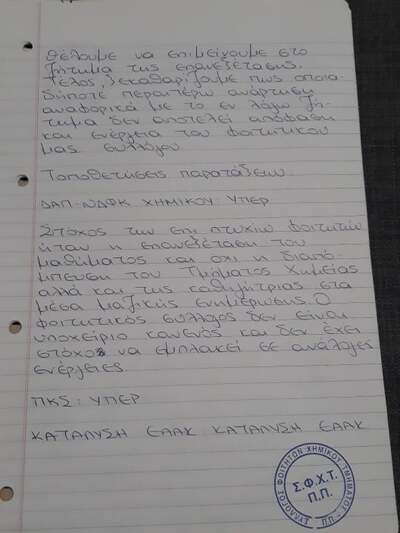 θέλουμε να επιμείνουμε στο
ζήτημα της επανεξέτασης.
Τέλος, ξεκαθαρίζουμε πως οποια-
δήποτε περαιτέρω ανάρτηση
αναφορικά με το εν λόγω ζή-
τημα δεν αποτελεί απόφαση
και ενέργεια του φοιτητικού
μας συλλόγου
Τοποθετήσεις παρατάξεων
ΔΑΠ-ΝΔΦΚ ΧΗΜΙΚΟΥ ΥΠΕΡ
Στόχος των επι πτυχίω φοιτητών
ήταν η επανεξέταση του
μαθήματος και όχι η διαπό-
μπευση του Τμήματος Χημείας
αλλά και της καθηγήτριας στα
μέσα μαζικής ενημέρωσης. Ο
φοιτητικός σύλλογος δεν είναι
υποχείριο κανενός και δεν έχει
στόχος να εμπλακεί σε ανάλογες
ενέργειες.
ΠΚΣ: ΥΠΕΡ
ΚΑΤΑΛΥΣΗ ΕΑΑΚ ΚΑΤΑΛΥΣΗ ΕΑΑΚ
ΣΥΛΛΟΓΟΣ ΦΟΙΤΗΤΩΝ ΧΗΜΙΚΟΥ ΤΜΗΜΑΤΟΣ - Π.Π.
Σ.Φ.Χ.Τ.
Π.Π.